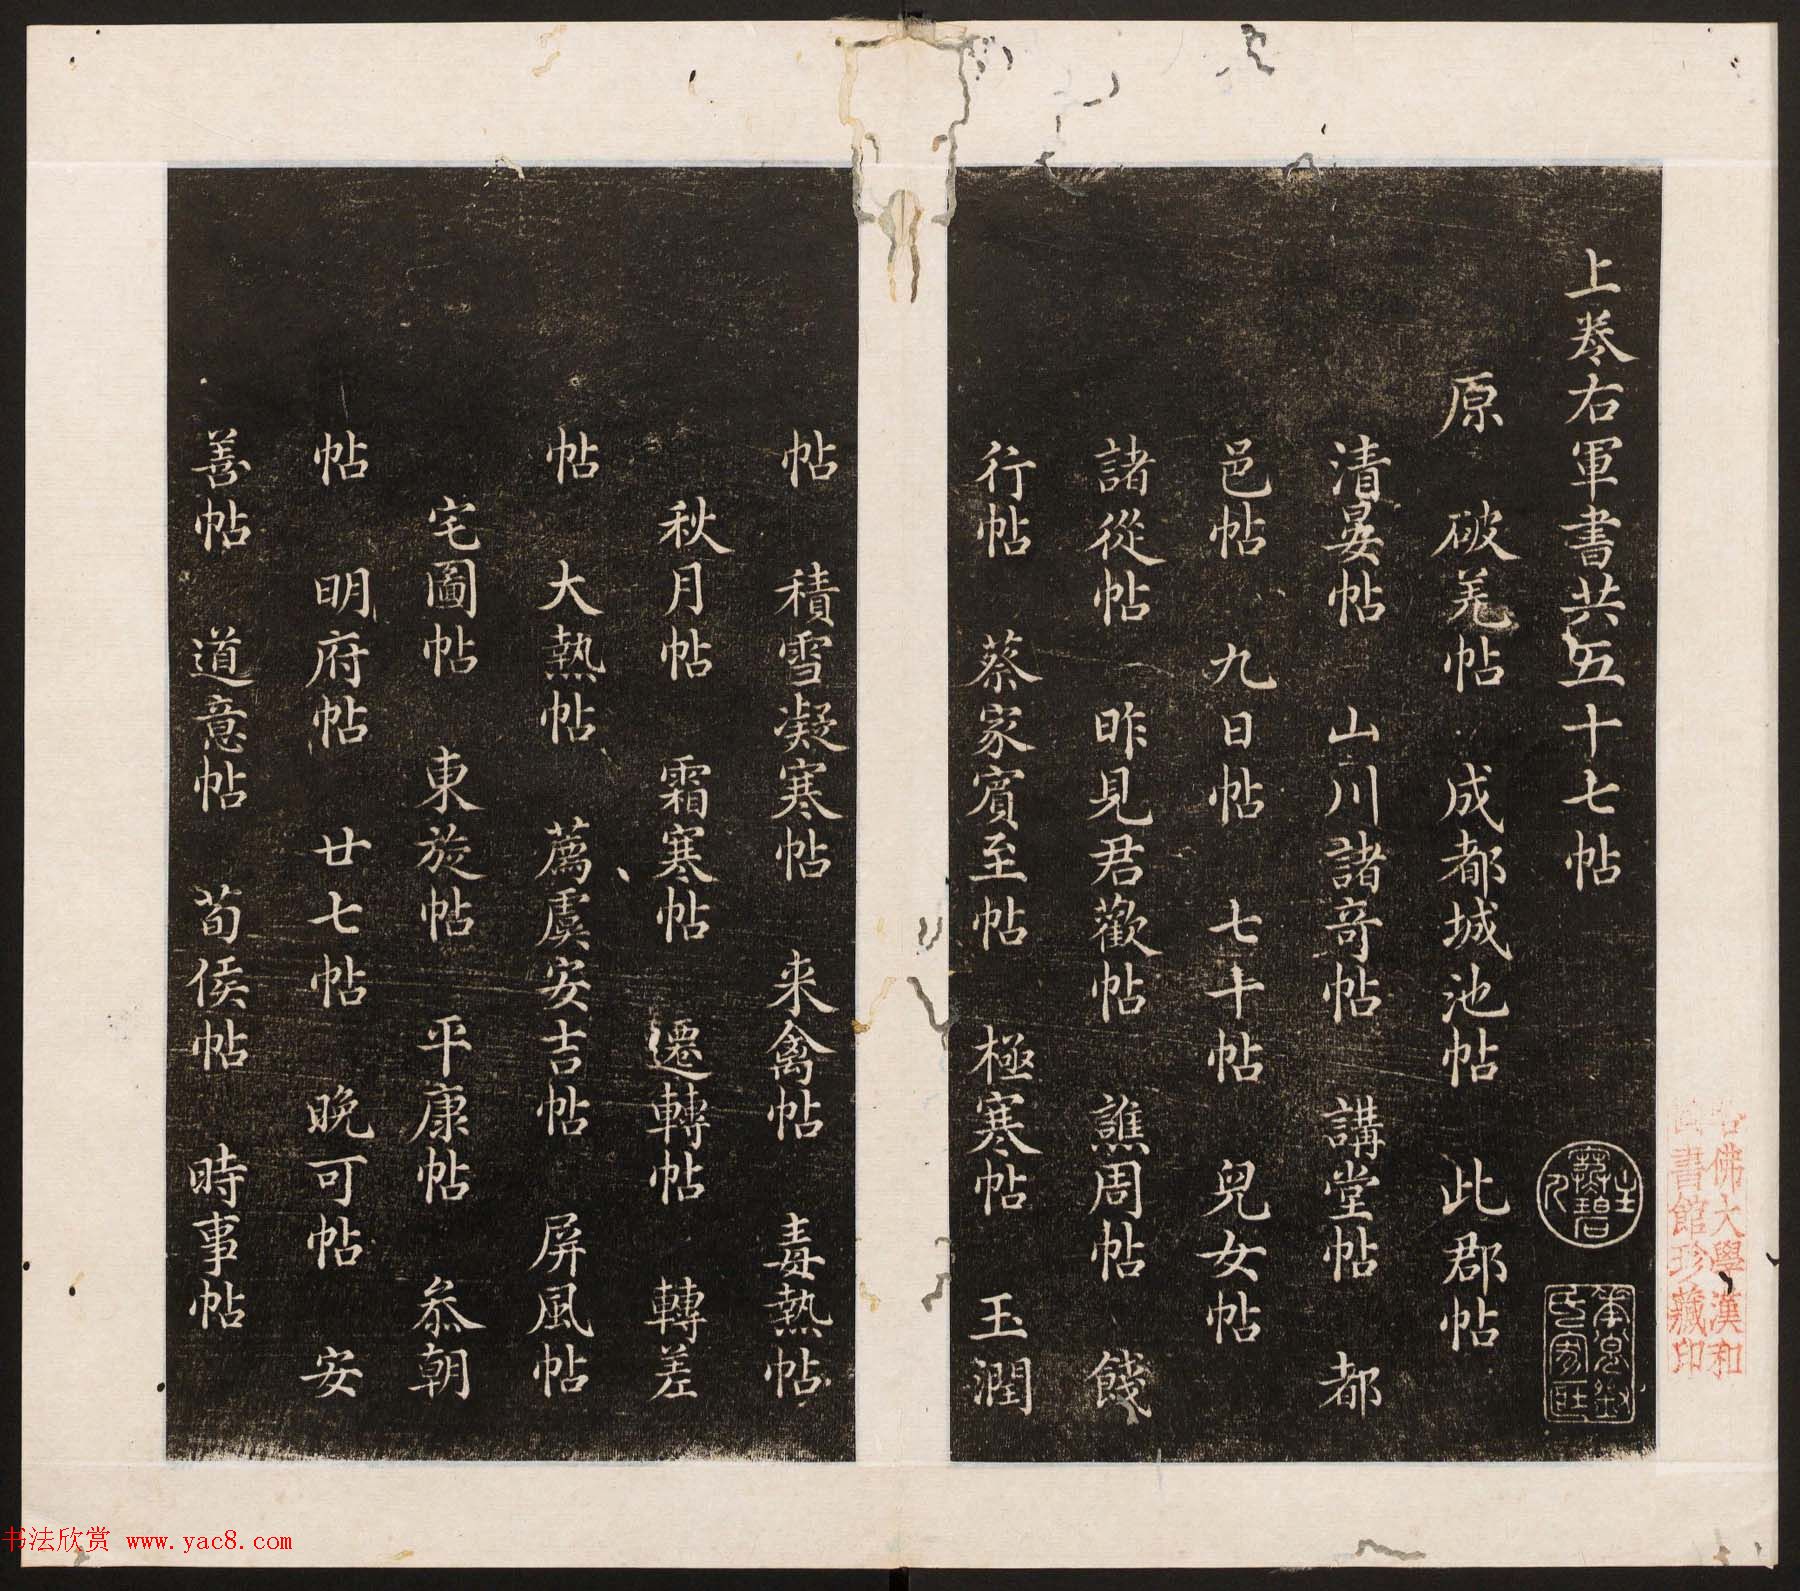 上卷右軍書共五十七帖
原　破羌帖　成都城池帖　此郡帖
清晏帖　山川諸奇帖　講堂帖　都
邑帖　九日帖　七十帖　兒女帖
諸從帖　昨見君歡帖　譙周帖　餞
行帖　蔡家賓至帖　極寒帖　玉潤
帖　積雪凝寒帖　来禽帖　毒熱帖
秋月帖　霜寒帖　遷轉帖　轉差
帖　大熱帖　薦虞安吉帖　屏風帖
宅圖帖　東旋帖　平康帖　叅朝
帖　明府帖　廿七帖　晚可帖　安
善帖　道意帖　荀侯帖　時事帖
佛大學漢和
書館珍藏印
书法欣赏 www.yac8.com